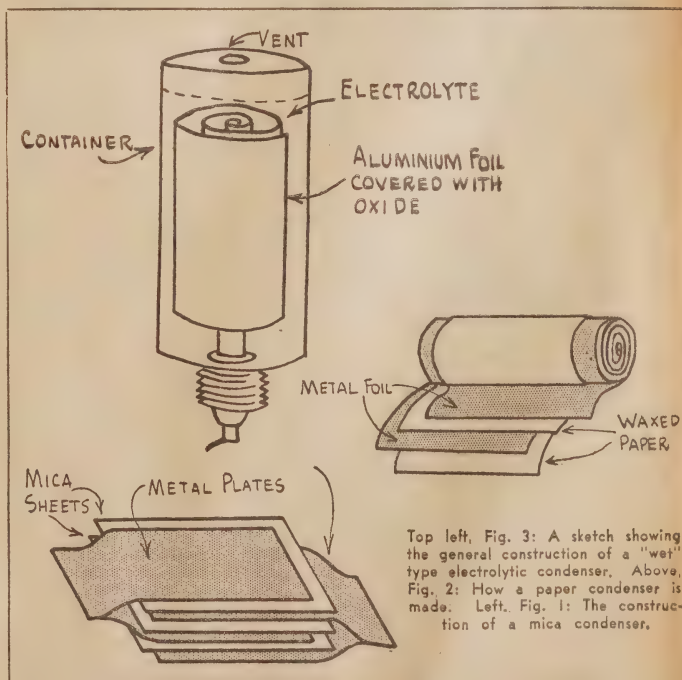 VENT
ELECTROLYTE
CONTAINER
ALUMINIUM FOIL
COVERED WITH
OXIDE
METAL FOIL
WAXED
PAPER
MICA
SHEETS
METAL PLATES
Top left, Fig. 3: A sketch showing
the general construction of a "wet"
type electrolytic condenser. Above,
Fig. 2: How a paper condenser is
made. Left, Fig. 1: The construc-
tion of a mica condenser.